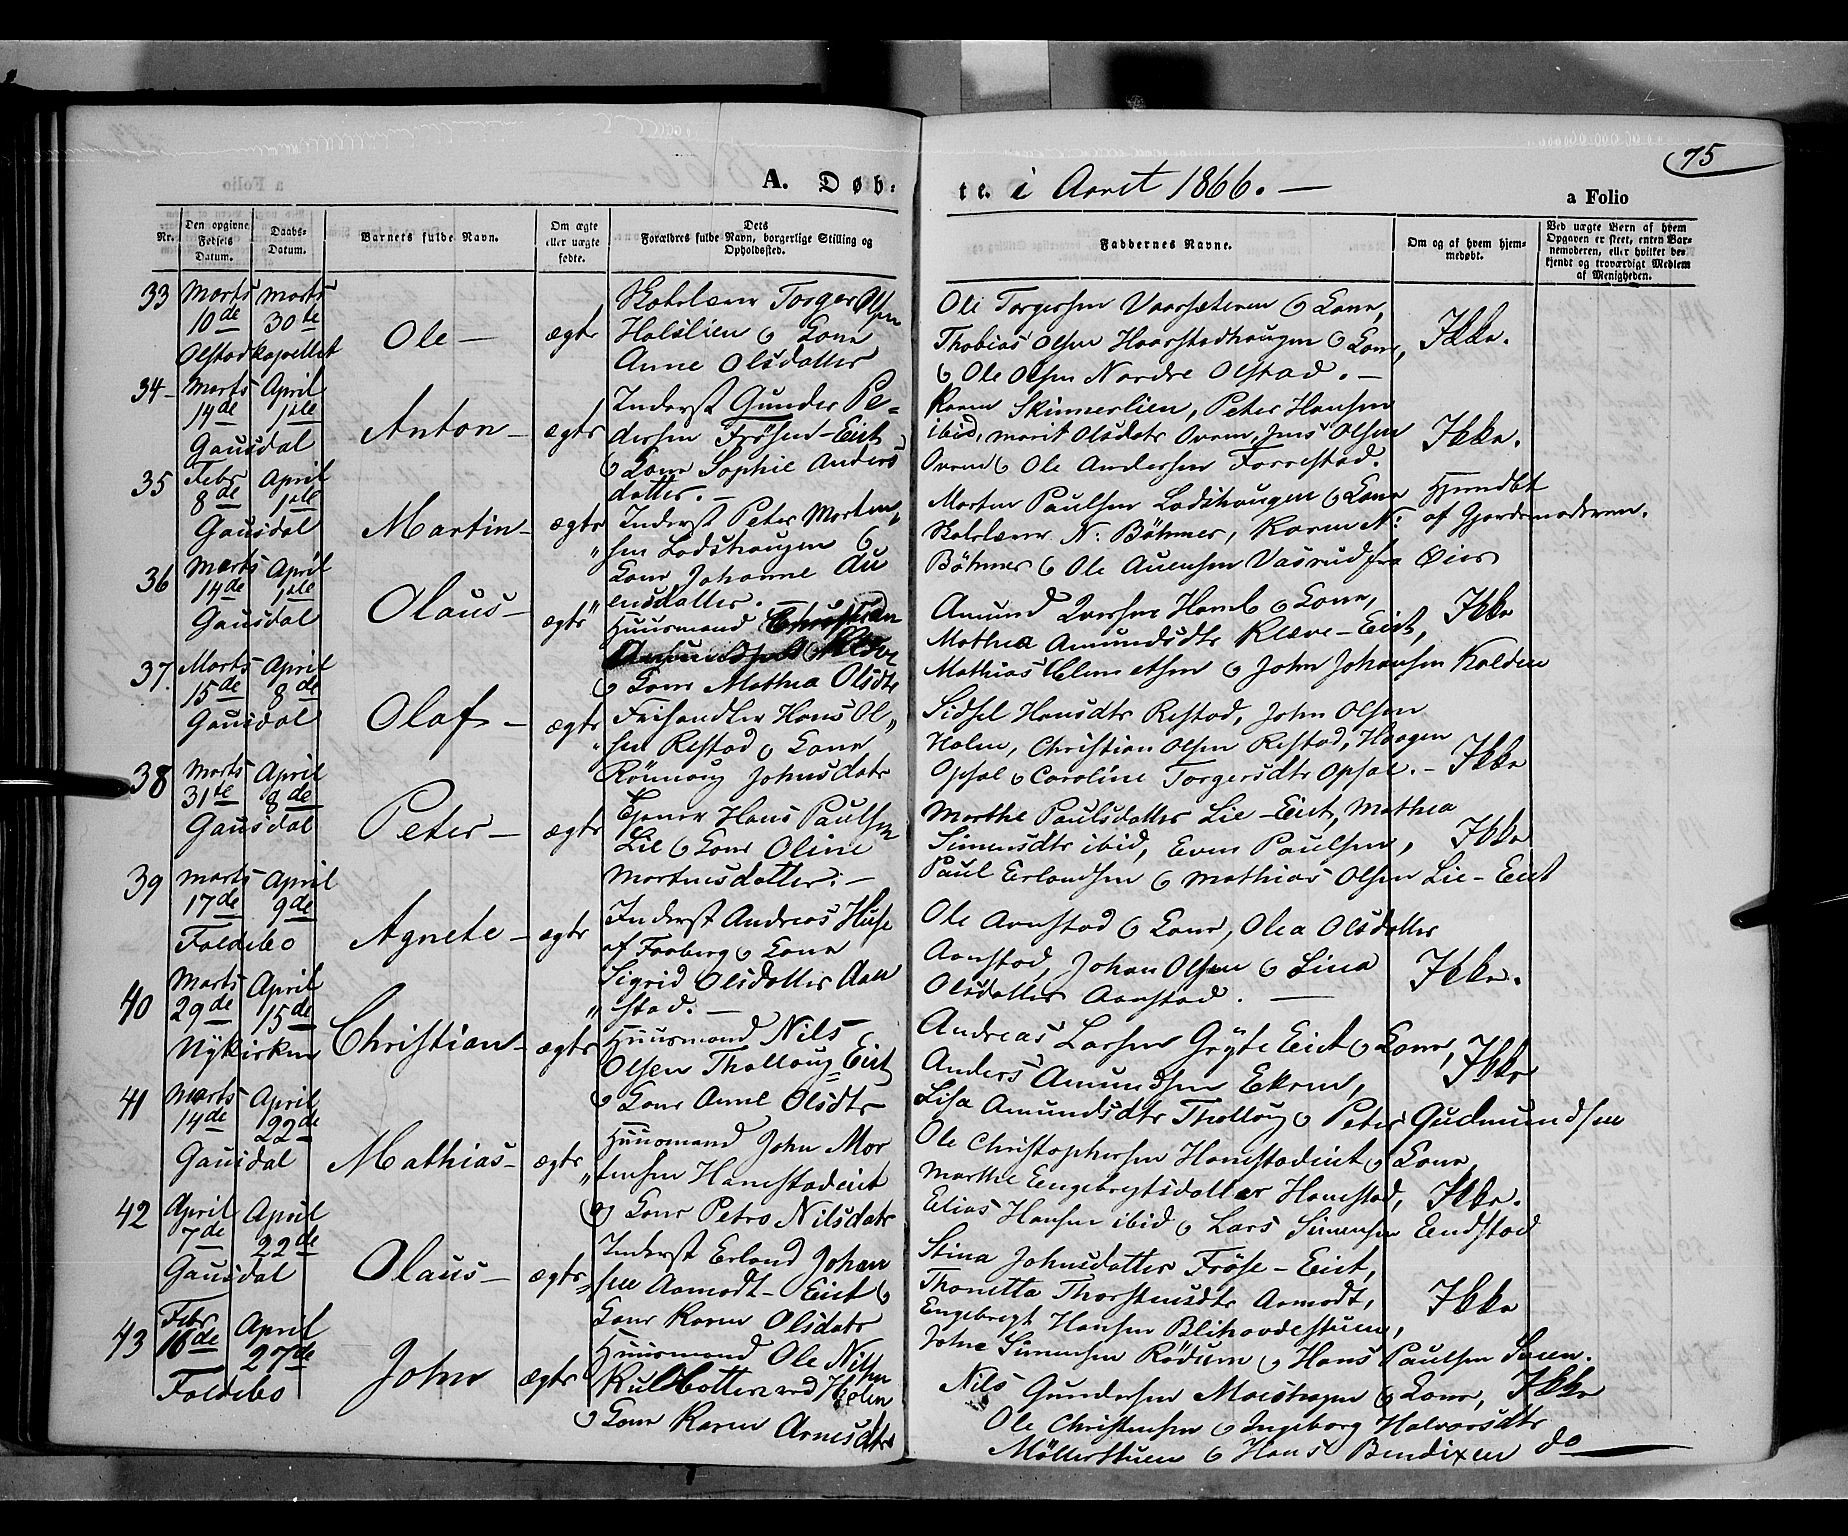 75
A. Døb: te. i Aaret 1866. —
a Folio
Nr.
Den opgivne Fødsels Datum.
Daabs-Datum.
Barnets fulde Navn.
Om ægte eller uægte fødte.
Dets Forældres fulde Navn, borgerlige Stilling og Opholdssted.
Faddernes Navne.
Om og af hvem hjemmedøbt.
Ved uægte Børn af hvem Opgaven er skeet, enten Barnemoderen, eller hvilket beskjendt og troværdigt Medlem af Menigheden.
33
Marts 10de
Marts 30te
Olstadkapellet
Ole —
ægte
Skolelærer Torger Olsen
Holslien & Kone
Anne Olsdatter
Ole Torgersen Vaarsæteren & Kone,
Thobias Olsen Haarstadhaugen & Kone,
& Ole Olsen Nordre Olstad. —
Ikke.
34
Marts 14de
April 1ste
Gausdal
Anton —
ægte
Inderst Gunder Pe=
dersen Frøsen-Eiet
& Kone Sophie Anders
datter. —
Karen Skinnerlien, Peter Hansen
ibid, Marit Olsdatr Ovren, Jens Olsen
Ovren & Ole Andersen Forrestad.
Ikke.
35
Febr 8de
April 1ste
Gausdal
Martin —
ægte
Inderst Peter Morten
sen Lodshaugen &
Kone Johanne Au
ensdatter. —
Morten Paulsen Lodshaugen & Kone
Skolelærer N: Böhmer, Karen N:
Böhmer & Ole Auensen Vasrud fra Øier
Hjemdbt
af Gjordemoderen.
36
Marts 14de
April 1ste
Gausdal
Olaus —
ægte
Huusmand Christian
Amundsen Kleve
& Kone Mathea Olsdtr
Amund Iversen Hamb & Kone,
Mathea Amundsdtr Klæve-Eiet,
Mathias Clemetsen & John Johansen Kolden
Ikke
37.
Marts 15de
April 8de
Gausdal
Olaf —
ægte
Frihandler Hans Ol
sen Restad & Kone
Rönnaug Johnsdatr
Sidsel Hansdtr Restad, John Olsen
Holm, Christian Olsen Restad, Haagen
Opsal & Caroline Torgersdtr Opsal. —
Ikke
38
Marts 31te
April 8de
Gausdal
Peter —
ægte
Ejener Hans Paulsen
Lie & Kone Oline
Mortensdatter. —
Marthe Paulsdatter Lie-Eiet, Mathea
Simensdtr ibid, Even Paulsen,
Paul Erlandsen & Mathias Olsen Lie-Eiet
Ikke
39
Marts 17de
April 9de
Foldebo
Agnete —
ægte
Inderst Andreas Huse
af Faaberg & Kone
Sigrid Olsdatter Aan
stad. —
Ole Aanstad & Kone, Olea Olsdatter
Aanstad, Johan Olsen & Lina
Olsdatter Aanstad. —
Ikke.
40
Marts 29de
April 15de
Nykirken
Christian —
ægte
Huusmand Nils
Olsen Thollaug-Eiet
& Kone Anne Olsdtr
Andreas Larsen Gryte Eiet & Kone,
Anders Amundsen Ekern,
Lisa Amundsdtr Thollaug & Peter Gudmundsen
Ikke
41
Marts 14de
April 22de
Gausdal
Mathias —
ægte
Huusmand John Mor
tensen Hanestadeiet
& Kone Petra Nilsdatr
Ole Christophersen Hanestadeiet & Kone,
Marthe Engebregtsdatter Hanestad,
Elias Hansen ibid & Lars Simensen Endstad
Ikke.
42
April 7de
April 22de
Gausdal
Olaus —
ægte
Inderst Erland Johan
sen Aamodt-Eiet &
Kone Karen Olsdatr
Stina Johnsdatter Frøse-Eiet,
Thonetta Thorstensdtr Aamodt,
Engebregt Hansen Blihovdestuen,
Johne Simensen Rödum & Hans Paulsen Soren.
Ikke
43
Febr 16de
April 27de
Foldebo
John
ægte
Huusmand Ole Nilsen
Kulbottten ved Holen
& Kone Karen Arnesdtr
Nils Gundersen Moeshagen & Kone,
Ole Christensen & Ingeborg Halvorsdtr
Möllerstuen & Hans Bendixen do
Ikke